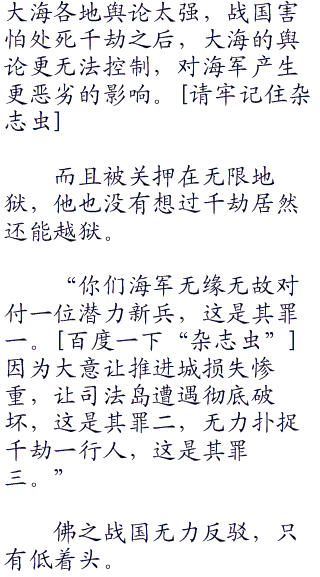 大海各地舆论太强，战国害
怕处死千劫之后，大海的舆
论更无法控制，对海军产生
更恶劣的影响。[请牢记住杂
志虫]
而且被关押在无限地
狱，他也没有想过千劫居然
还能越狱。
“你们海军无缘无故对
付一位潜力新兵，这是其罪
一。[百度一下“杂志虫”]
因为大意让推进城损失惨
重，让司法岛遭遇彻底破
坏，这是其罪二，无力扑捉
千劫一行人，这是其罪
三。”
佛之战国无力反驳，只
有低着头。